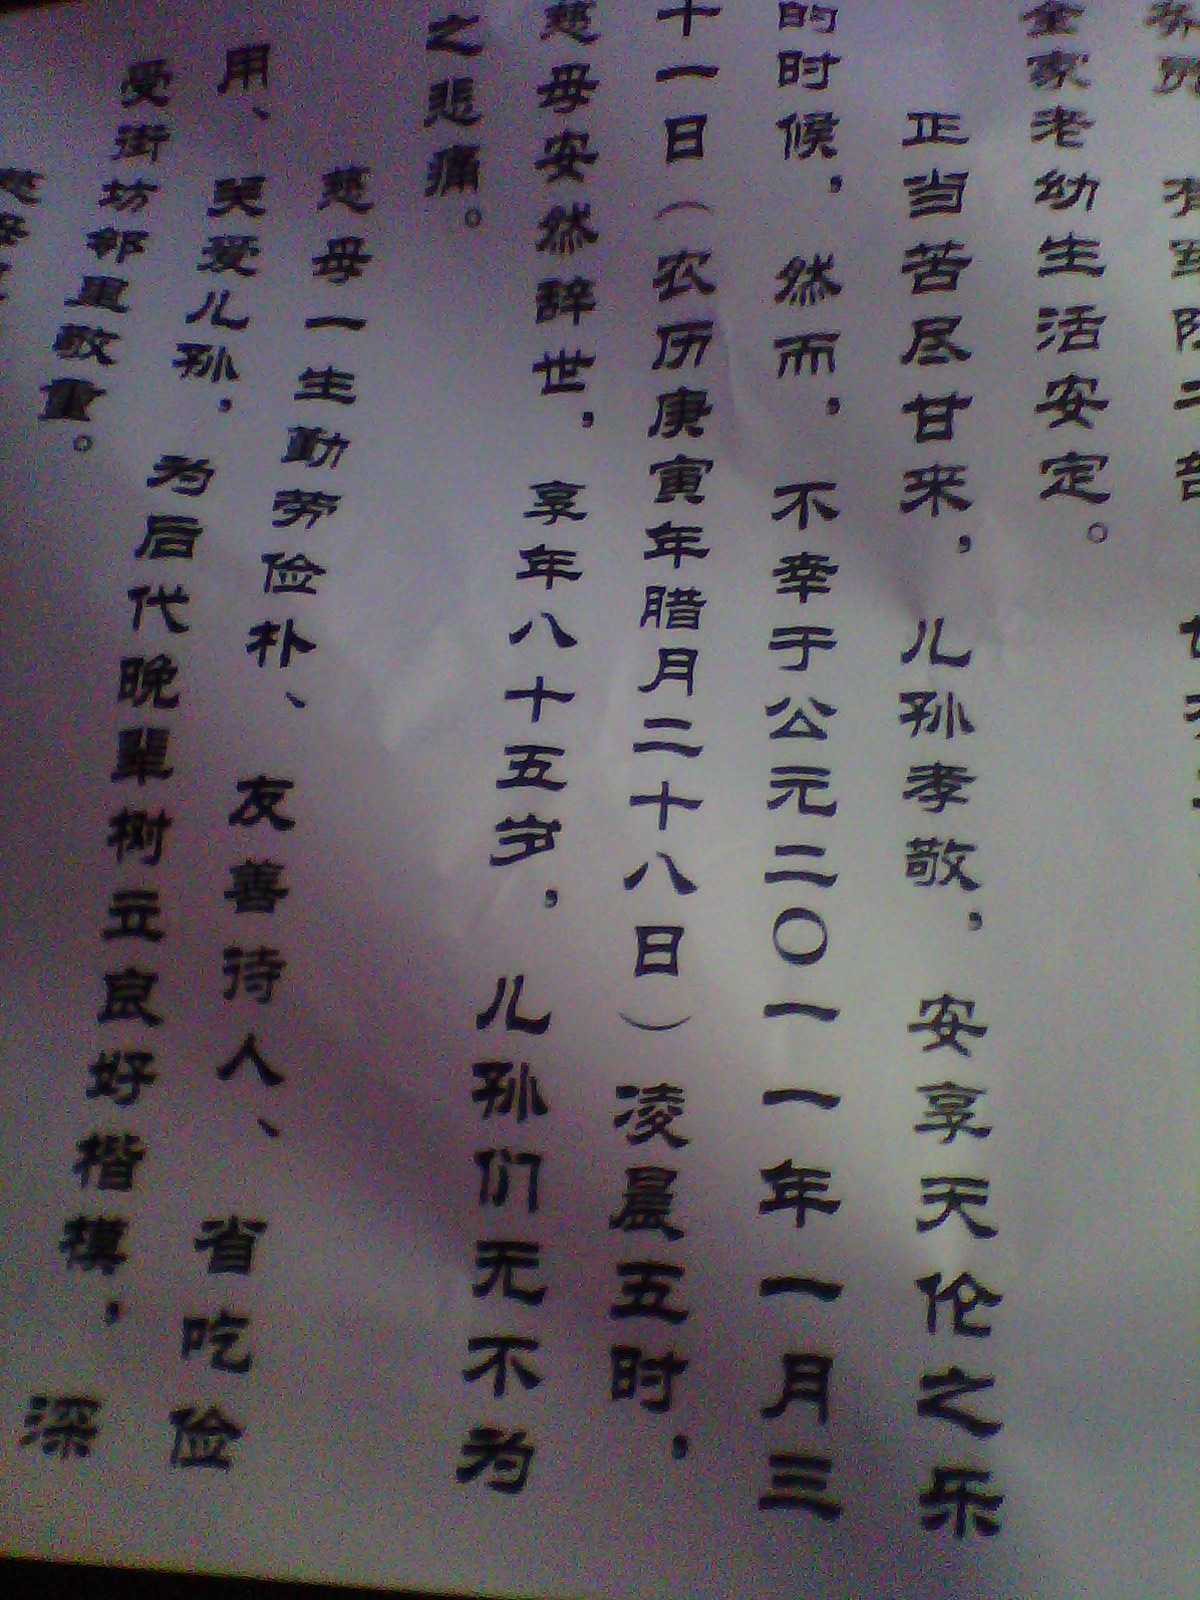 全家老幼生活安定。
正当苦尽甘来，儿孙孝敬，安享天伦之乐
的时候，然而，不幸于公元二〇一一年一月三
十一日（农历庚寅年腊月二十八日）凌晨五时，
慈母安然辞世，享年八十五岁，儿孙们无不为
之悲痛。
慈母一生勤劳俭朴、友善待人、省吃俭
用、哭爱儿孙，为后代晚辈树立良好楷模，深
受街坊邻里敬重。